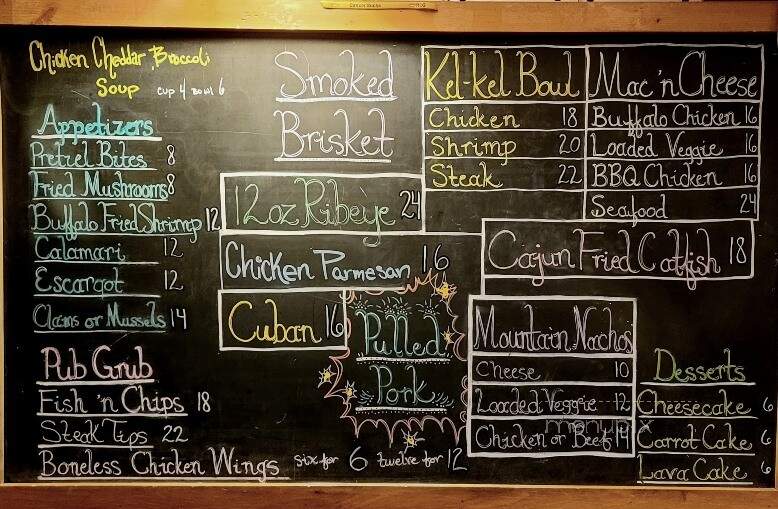 Chicken Cheddar, Broccoli
Soup cup 4 bowl 6
Appetizers
Pretzel Bites 8
Fried Mushrooms 8
Buffalo Fried Shrimp 12
Calamari 12
Escargot 12
Clams or Mussels 14
Pub Grub
Fish 'n Chips 18
Steak Tips 22
Boneless Chicken Wings six for 6 twelve for 12
Smoked
Brisket
12oz Ribeye 24
Chicken Parmesan 16
Cuban 16
Pulled
Pork
Kel-kel Bowl
Chicken 18
Shrimp 20
Steak 22
Mac 'n Cheese
Buffalo Chicken 16
Loaded Veggie 16
BBQ Chicken 16
Seafood 24
Cajun Fried Catfish 18
Mountain Nachos
Cheese 10
Loaded Veggie 12
Chicken or Beef 14
Desserts
Cheesecake 6
Carrot Cake 6
Lava Cake 6